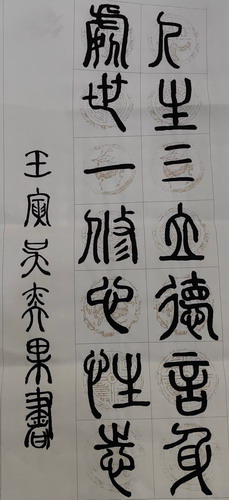 人生三立德言身
處世一修心性志
壬寅吴奕果書